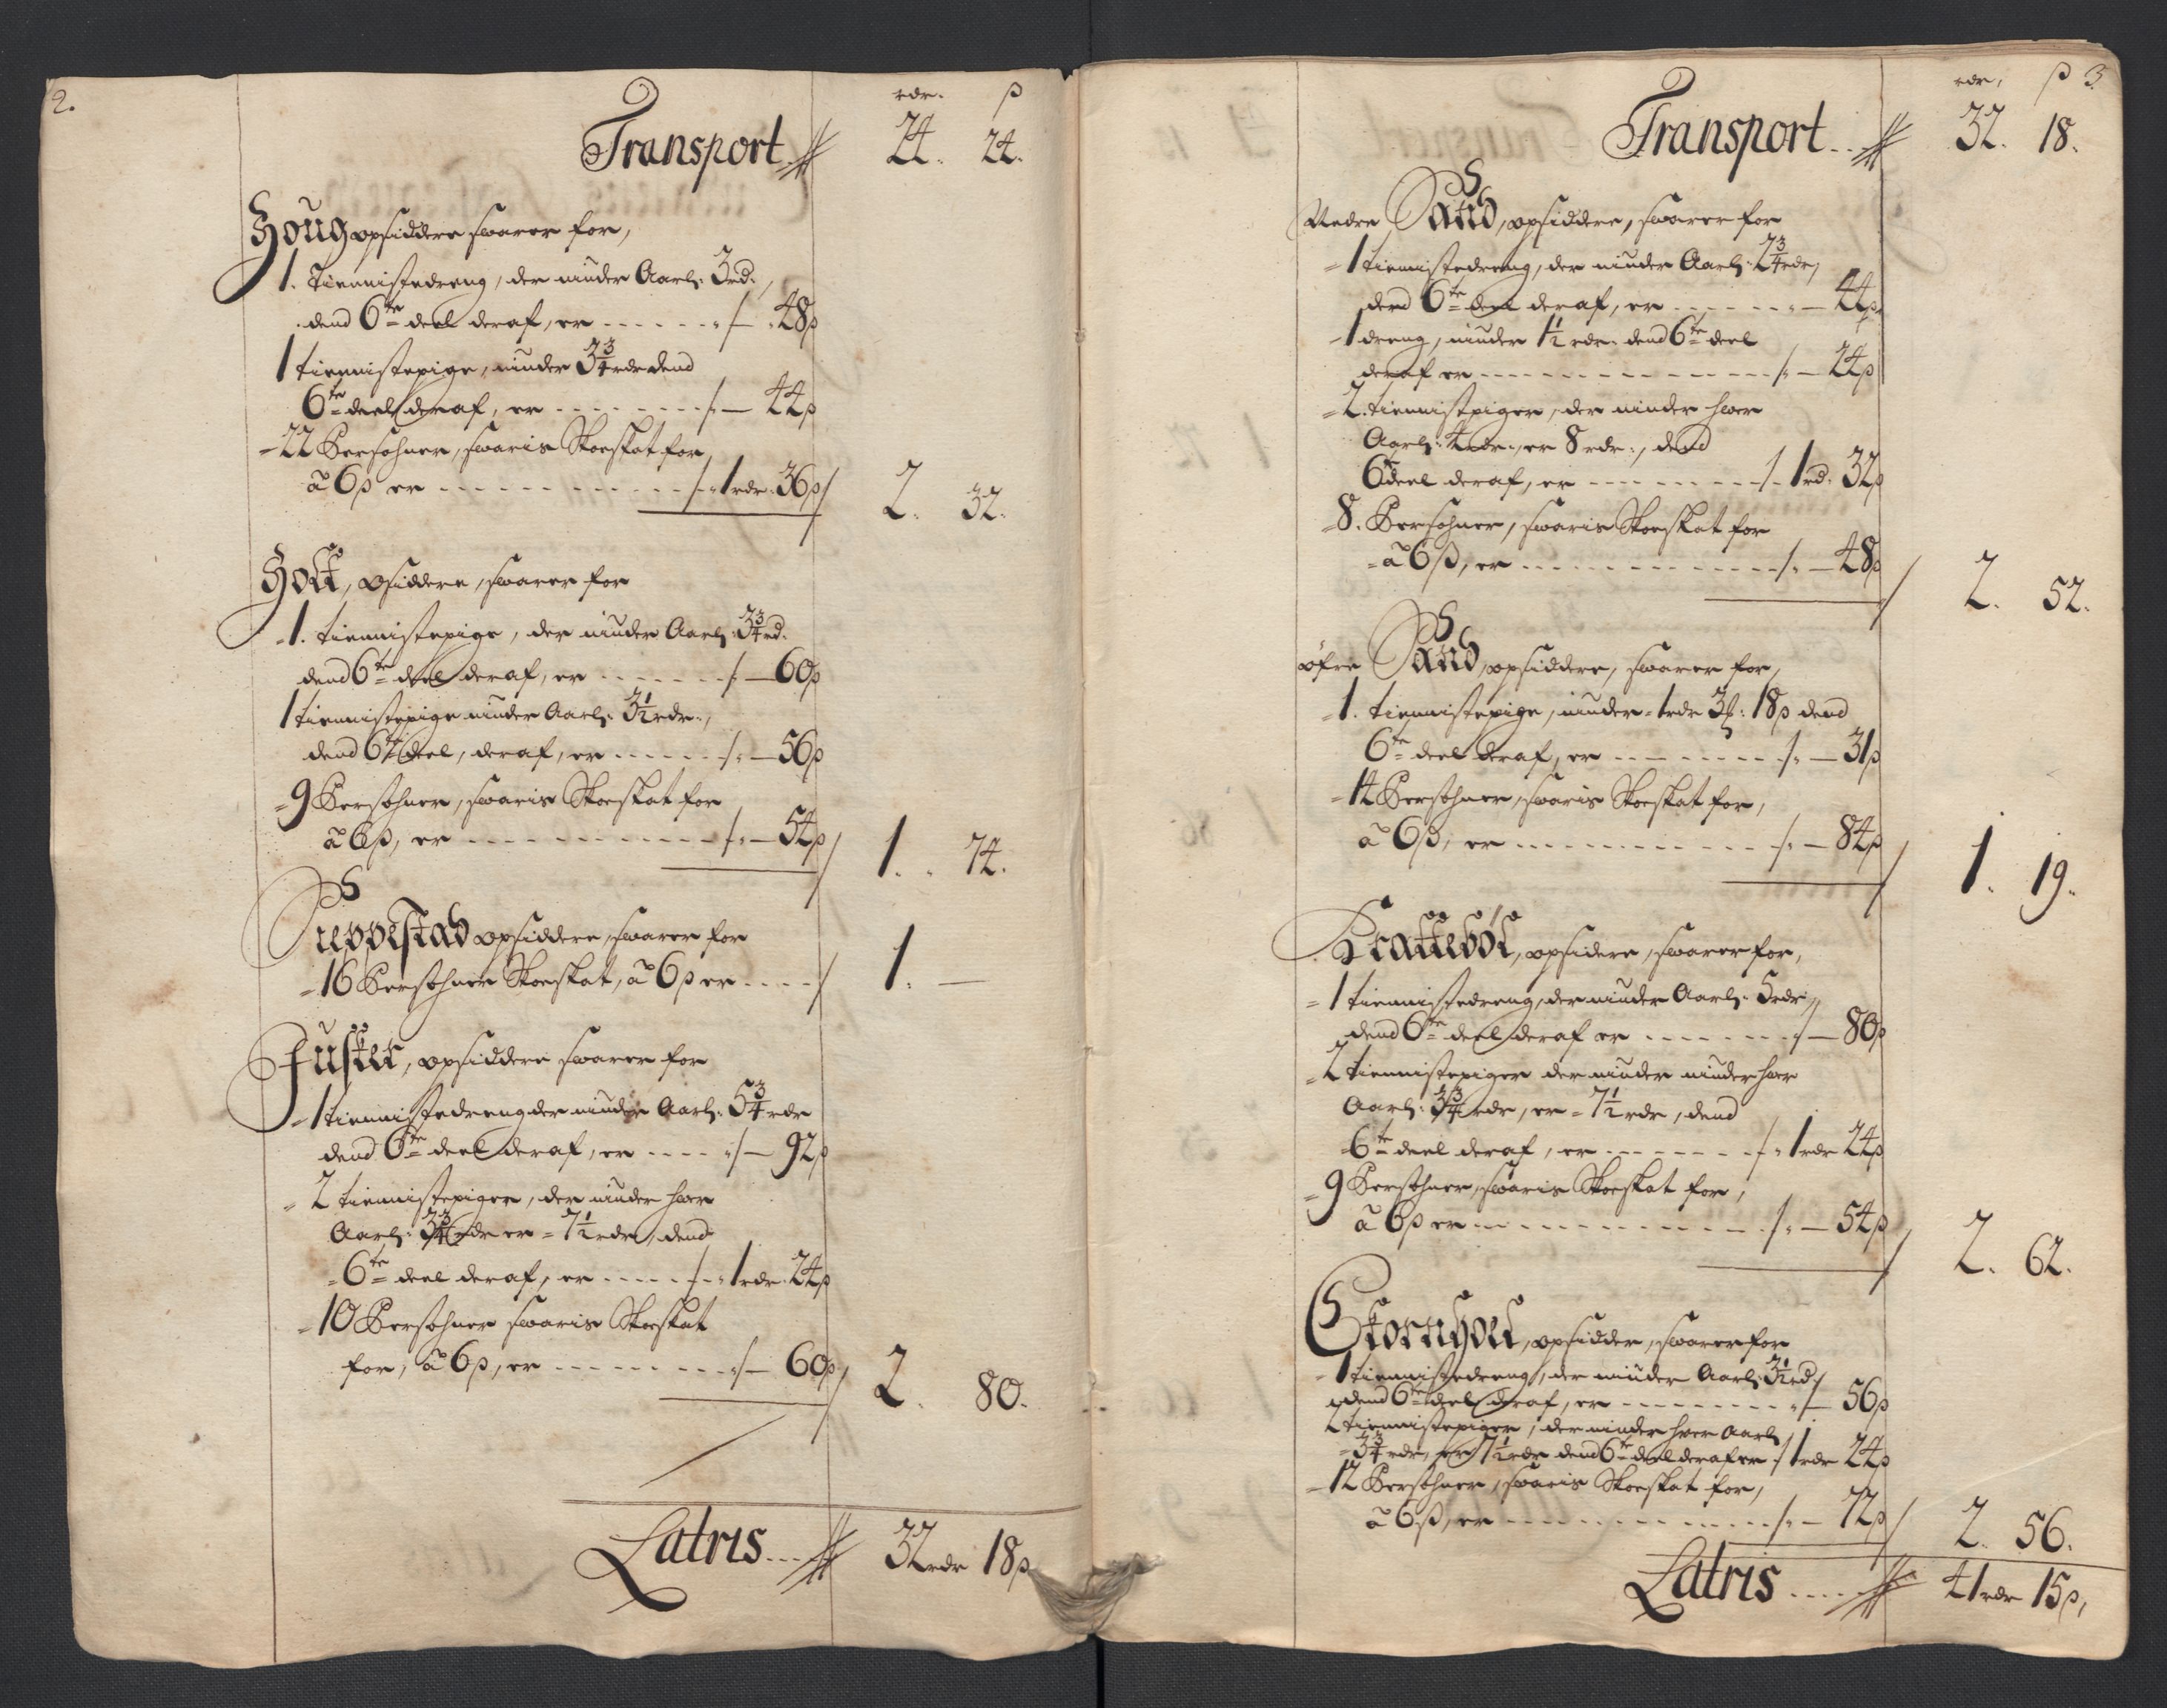 2.
rdr. ß
Transport 24. 24.
Houg opsiddere swarer for,
1. tiennistedreng, der niuder Aarl: 3rd:,
dend 6te deel deraf, er ------ /- 48ß
1 tiennistepige, niuder 2¾ rdr dend
6te deel deraf, er -------- /: — 44ß
- 22 Persohner, swaris Skoeskat for
à 6ß er ------------ /: 1rdr. 36ß / 2. 32.
Holt, opsiddere, swarer for
- 1. tiennistepige, der niuder Aarl: 3¾rd.
dend 6te deel deraf, er ------- /: — 60ß
1 tiennistepige niuder Aarl: 3½rdr.,
dend 6te deel, deraf, er ------ /: — 56ß
- 9 Persohner, swaris Skoeskat for
à 6ß, er ----------- /: — 54ß / 1. 74.
opsiddere, swarer for
- 16 Persohner Skoeskat, à 6ß er ---- / 1. —
Fuster, opsiddere swarer for
- 1 tiennistedreng der niuder Aarl: 5¾ rdr
dend 6te deel deraf, er ---- :/— 92ß
- 2 tiennistepiger, der niuder hver
Aarl: 3¾ rdr er = 7½ rdr, dend
- 6te deel deraf, er ------ /-: 1rdr. 24ß
- 10 Persohner swaris Skoeskat
for, à 6ß, er --------- :/— 60ß / 2. 80.
Latris---- 32rdr 18ß
rdr, ß 3.
Transport.-- 32. 18.
Nedre Sand, opsiddere, swarer for
- 1 tiennistedreng, der niuder Aarl: 2¾ rdr,
dend 6te deel deraf, er ------ : — 44ß.
- 1 dreng, niuder 1½ rdr. dend 6te deel
deraf er -------------- /: — 24ß
- 2. tiennistpiger, der niuder hver
Aarl: 4rdr., er 8 rdr:, dend
6te deel deraf, er --------- /- 1rd: 32ß
- 8. Persohner, swaris Skoeskat for
- à 6ß, er ------------ /: — 48ß / 2. 52.
øfre Sand, opsiddere, swarer for,
- 1. tiennistepige, niuder = 1rdr 3 : 18ß dend
6te deel deraf, er -------- /: — 31ß
- 14 Persohner, swaris Skoeskat for,
à 6ß, er ------------ /: — 84ß / 1. 19.
Krattebøl, opsidere, swarer for,
- 1 tiennistedreng, der niuder Aarl: 5rdr:,
dend 6te deel deraf er ------- :/— 80ß
- 2 tiennistepiger der niuder niuder hver
Aarl: 3¾ rdr, er = 7½ rdr, dend
6te deel deraf, er -------- /- : 1rdr 24ß
- 9 Persohner, swaris Skoeskat for,
à 6ß er ------------- /: — 54ß / 2. 62.
Stornholt, opsidder, swarer for
- 1 tiennistedreng, der niuder Aarl: 3½rd:
dend 6te deel deraf, er --------- :/— 56ß
2 tiennistepiger, der niuder hver Aarl:
- 3¾ rdr, er 7½ rdr dend 6te deel deraf er :/ 1rdr 24ß
- 12 Persohner, swaris Skoeskat for,
à 6ß, er ------------- /: — 72ß / 2. 56.
Latris ----- 41rdr 15ß,